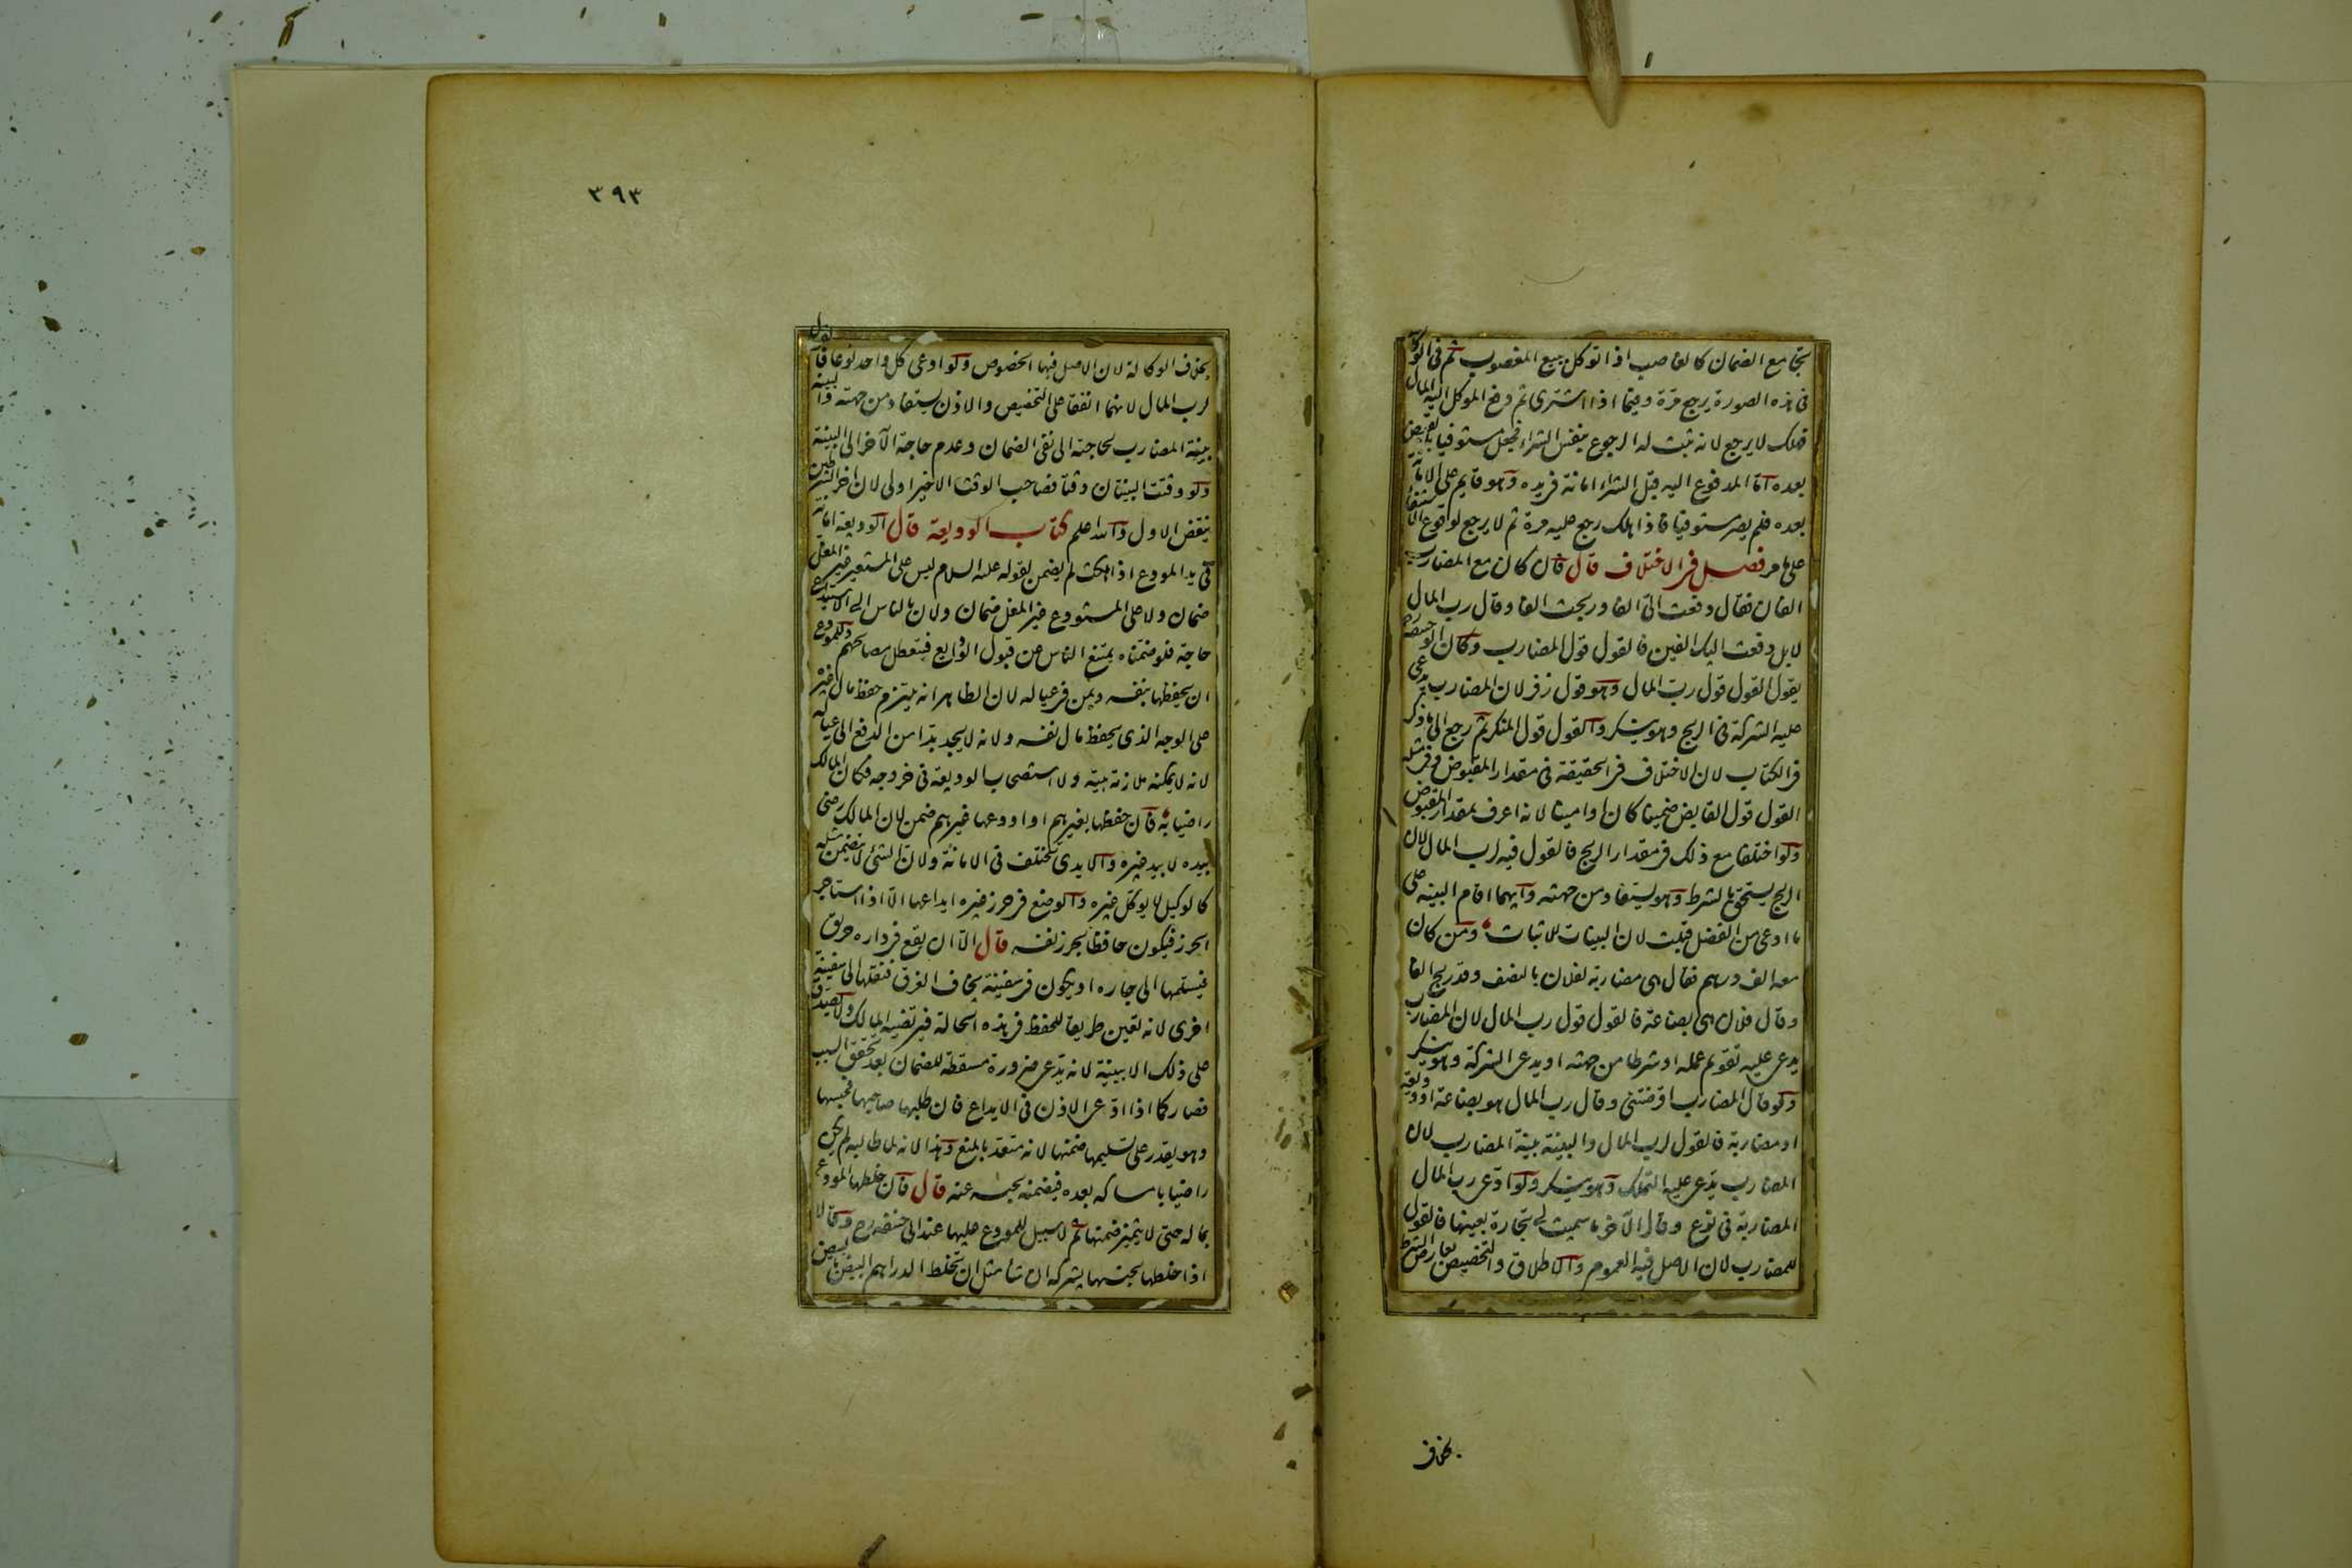 يجامع الضمان كالغاصب اذا توكل ببيع المغصوب ثم فى الوكالة
فى هذه الصورة يرجع مرة وفيما اذا اشترى ثم دفع الموكل اليه المال
فهلك لا يرجع لانه ثبت له الرجوع بنفس الشراء فجعل مستوفيا بالقبض
بعده اما المدفوع اليه قبل الشراء امانة فى يده وهو قايم على الامانة
بعده فلم يصر مستوفيا فاذا هلك رجع عليه مرة ثم لا يرجع لوقوع الاستيفاء
على ما مر فصل فى الاختلاف قال فان كان مع المضارب
الفان فقال دفعت الىّ الفا وربحت الفا وقال رب المال
لا بل دفعت اليك الفين فالقول قول المضارب وكان ابو حنيفة رح
يقول القول قول رب المال وهو قول زفر لان المضارب يدعى
عليه الشركة فى الربح وهو ينكر والقول قول المنكر ثم رجع الى ما ذكر
فى الكتاب لان الاختلاف فى الحقيقة فى مقدار المقبوض وفى مثله
القول قول القابض ضمينا كان او امينا لانه اعرف بمقدار المقبوض
ولو اختلفا مع ذلك فى مقدار الربح فالقول فيه لرب المال لان
الربح يستحق بالشرط وهو يستفاد من جهته وايهما اقام البينة على
ما ادعى من الفضل قبلت لان البينات للاثبات ومن كان
معه الف درهم فقال هى مضاربة لفلان بالنصف وقد ربح الفا
وقال فلان هى بضاعة فالقول قول رب المال لان المضارب
يدعى عليه تقويم عمله او شرطا من جهته او يدعى الشركة وهو ينكر
ولو قال المضارب اقرضتنى وقال رب المال هو بضاعة او وديعة
او مضاربة فالقول لرب المال والبينة بينة المضارب لان
المضارب يدعى عليه التملك وهو ينكر ولو ادعى رب المال
المضاربة فى نوع وقال الآخر ما سميت لى تجارة بعينها فالقول
للمضارب لان الاصل فيه العموم والاطلاق والتخصيص بعارض الشرط
بخلاف
٣٩٣
بخلاف الوكالة لان الاصل فيها الخصوص ولو ادعى كل واحد نوعا فالقول
لرب المال لانهما اتفقا على التخصيص والاذن يستفاد من جهته والبينة
بينة المضارب لحاجته الى نفى الضمان وعدم حاجة الآخر الى البينة
ولو وقتت البينتان وقتا فصاحب الوقت الاخير اولى لان آخر الشرطين
ينقض الاول والله اعلم كتاب الوديعة قال الوديعة امانة
فى يد المودع اذا هلكت لم يضمن لقوله عليه السلام ليس على المستعير غير المغل
ضمان ولا على المستودع غير المغل ضمان ولان بالناس الى الاستيداع
حاجة فلو ضمناه يمتنع الناس من قبول الودايع فيتعطل مصالحهم وللمودع
ان يحفظها بنفسه وبمن فى عياله لان الظاهر انه يلتزم حفظ مال غيره
على الوجه الذى يحفظ مال نفسه ولانه لا يجد بدا من الدفع الى عياله
لانه لا يمكنه ملازمة بيته ولا استصحاب الوديعة فى خروجه فكان المالك
راضيا به فان حفظها بغيرهم او اودعها غيرهم ضمن لان المالك رضى
بيده لا بيد غيره والايدى تختلف فى الامانة ولان الشئ لا يتضمن مثله
كالوكيل لا يوكل غيره والوضع فى حرز غيره ايداعها الا اذا استاجر
الحرز فيكون حافظا بحرز نفسه قال الا ان يقع فى داره حريق
فيسلمها الى جاره او يكون فى سفينة يخاف الغرق فنقلها الى سفينة
اخرى لانه تعين طريقا للحفظ فى هذه الحالة فيرتضيه المالك ولا يصدق
على ذلك الا ببينة لانه يدعى ضرورة مسقطة للضمان بعد تحقق السبب
فصار كما اذا ادعى الاذن فى الايداع فان طلبها صاحبها فحبسها
وهو يقدر على تسليمها ضمنها لانه متعد بالمنع وهذا لانه لما طالبه لم يكن
راضيا بامساكه بعده فيضمنه بحبسه عنه قال فان خلطها المودع
بماله حتى لا يتميز ضمنها ثم لا سبيل للمودع عليها عند ابى حنيفة رح وقالا
اذا خلطها بجنسها يشركه ان شا مثل ان يخلط الدراهم البيض بالبيض